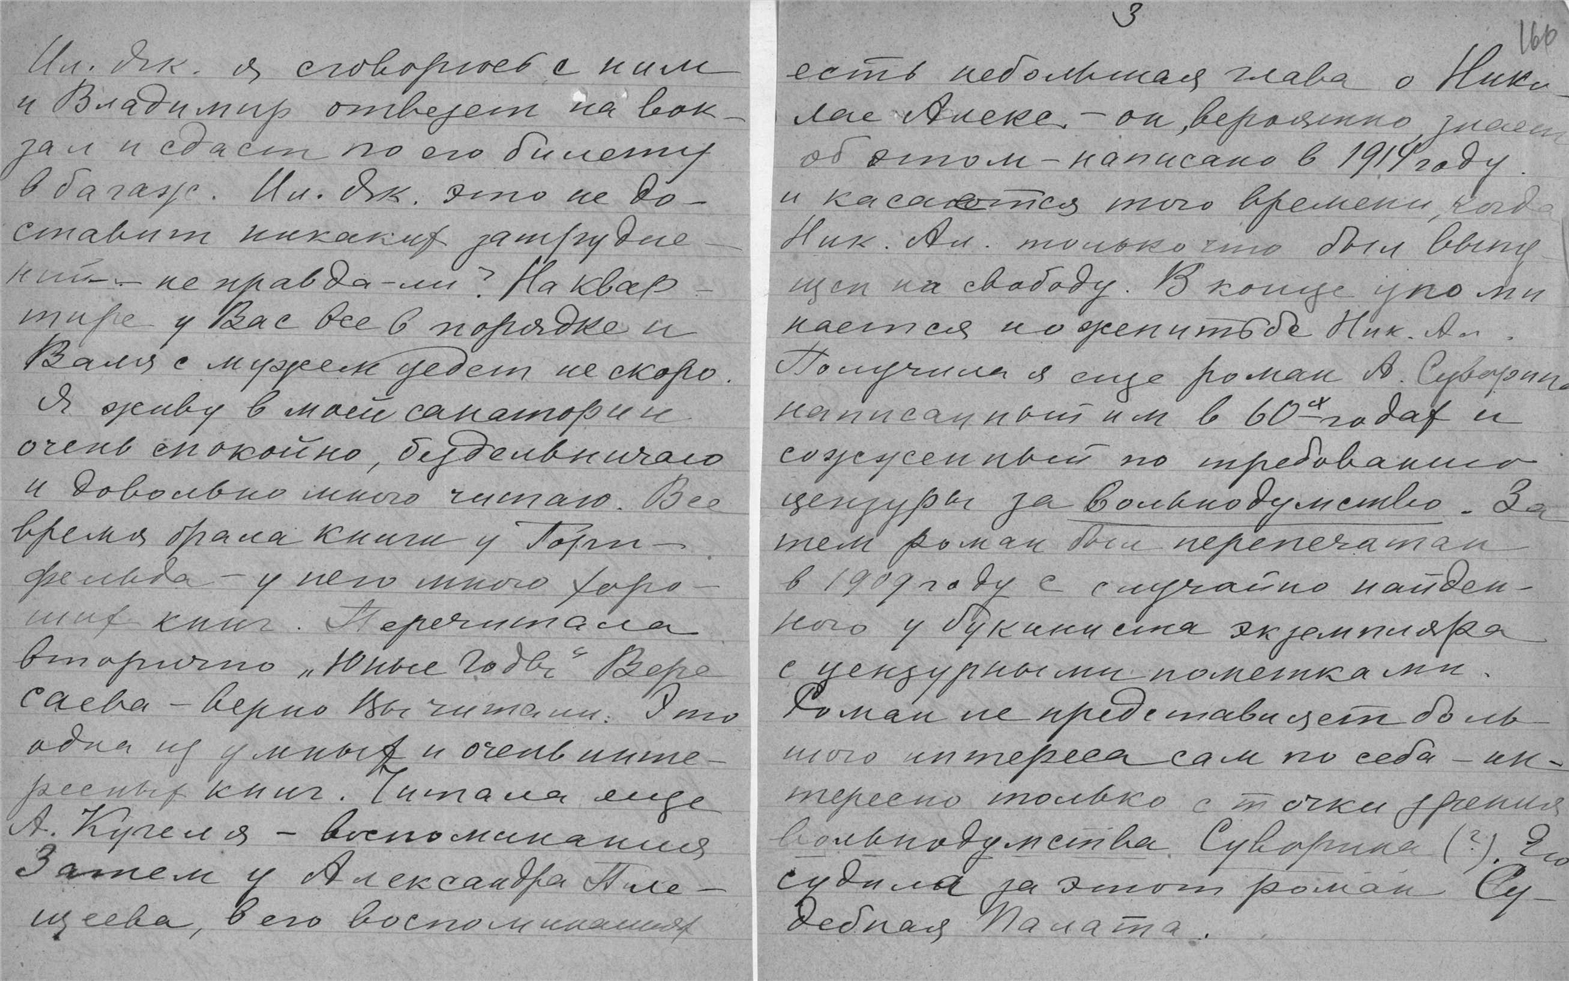 Ил. Як. я сговорюсь с ним
и Владимир отвезет на вок-
зал и сдаст по его билету
в багаж. Ил. Як. это не до-
ставит никаких затрудне-
ний - не правда-ли? На квар-
тире у Вас все в порядке и
Валя с мужем уедет не скоро.
Я живу в моей санатории
очень спокойно, бездельничаю
и довольно много читаю. Все
время брала книги у Горн-
фельда - у него много хоро-
ших книг. Перечитала
вторично „Юные годы“ Вере
саева - верно Вы читали. Это
одна из умных и очень инте-
ресных книг. Читала еще
А. Кугеля - воспоминания
Затем у Александра Пле-
щеева, в его воспоминаниях
3
166
есть небольшая глава о Нико-
лае Алекс. - он, вероятно, знает
об этом - написано в 1914 году
и касается того времени, когда
Ник. Ал. только что был выпу
щен на свободу. В конце упоми
нается и о женитьбе Ник. Ал.
Получила я еще роман А. Суворина
написанный им в 60х годах и
сожженный по требованию
цензуры за вольнодумство. За
тем роман был перепечатан
в 1909 году с случайно найден-
ного у букиниста экземпляра
с цензурными пометками.
Роман не представляет боль-
шого интереса сам по себе - ин-
тересно только с точки зрения
вольнодумства Суворина (?). Его
судила за этот роман Су-
дебная Палата.